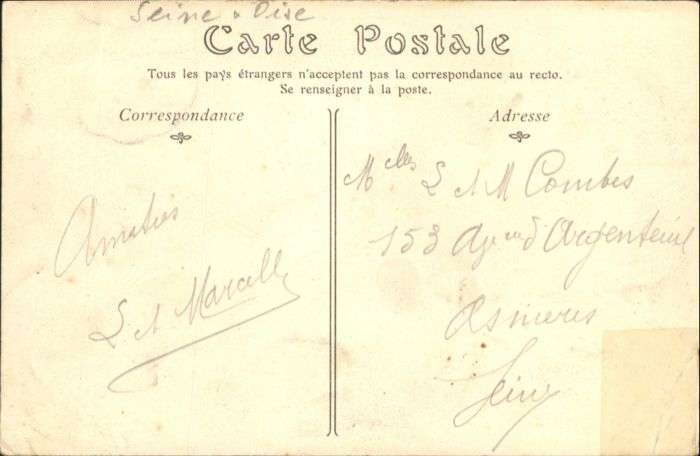 Seine & Oise
Carte Postale
Tous les pays étrangers n'acceptent pas la correspondance au recto.
Se renseigner à la poste.
Correspondance
Adresse
Amities
L et Marcelle
Melles L et M Combes
153 Av d'Argenteuil
Asnieres
Seine